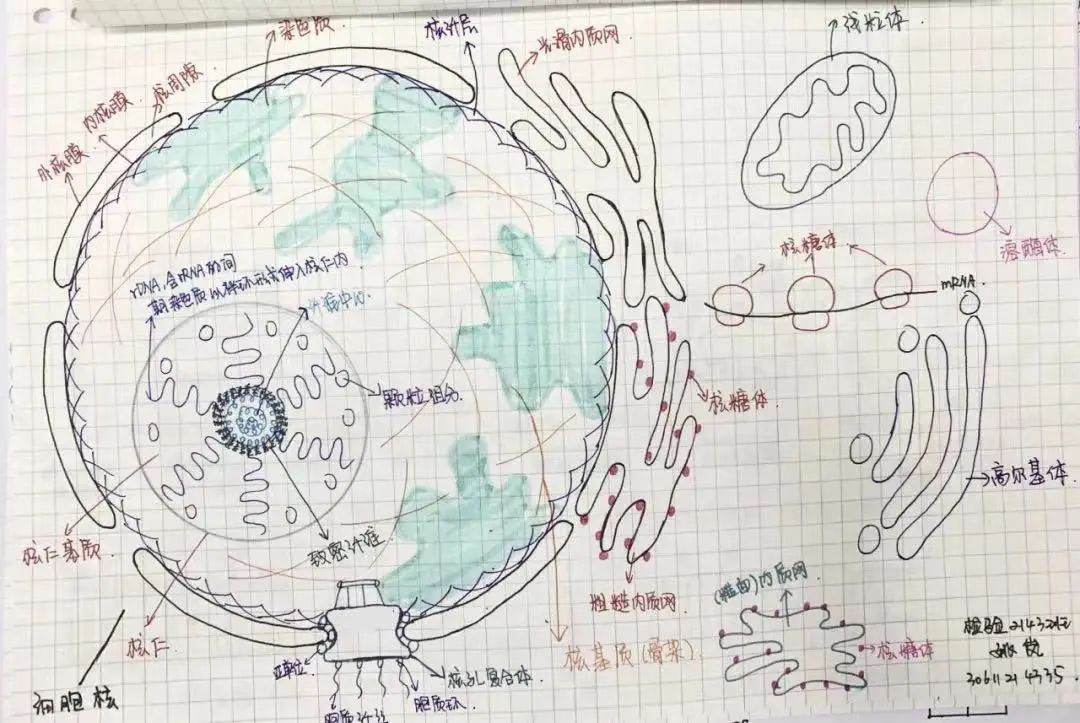 染色质
核纤层
光滑内质网
线粒体
核周隙
内核膜
外核膜
溶酶体
核糖体
mRNA
rDNA,含rRNA的间
期染色质以袢环形式伸入核仁内
纤维中心
颗粒组分
核糖体
高尔基体
核仁基质
致密纤维
粗糙内质网
(糙面)内质网
核仁
核基质(骨架)
核糖体
亚单位
核孔复合体
胞质环
胞质纤维
细胞核
30611214335